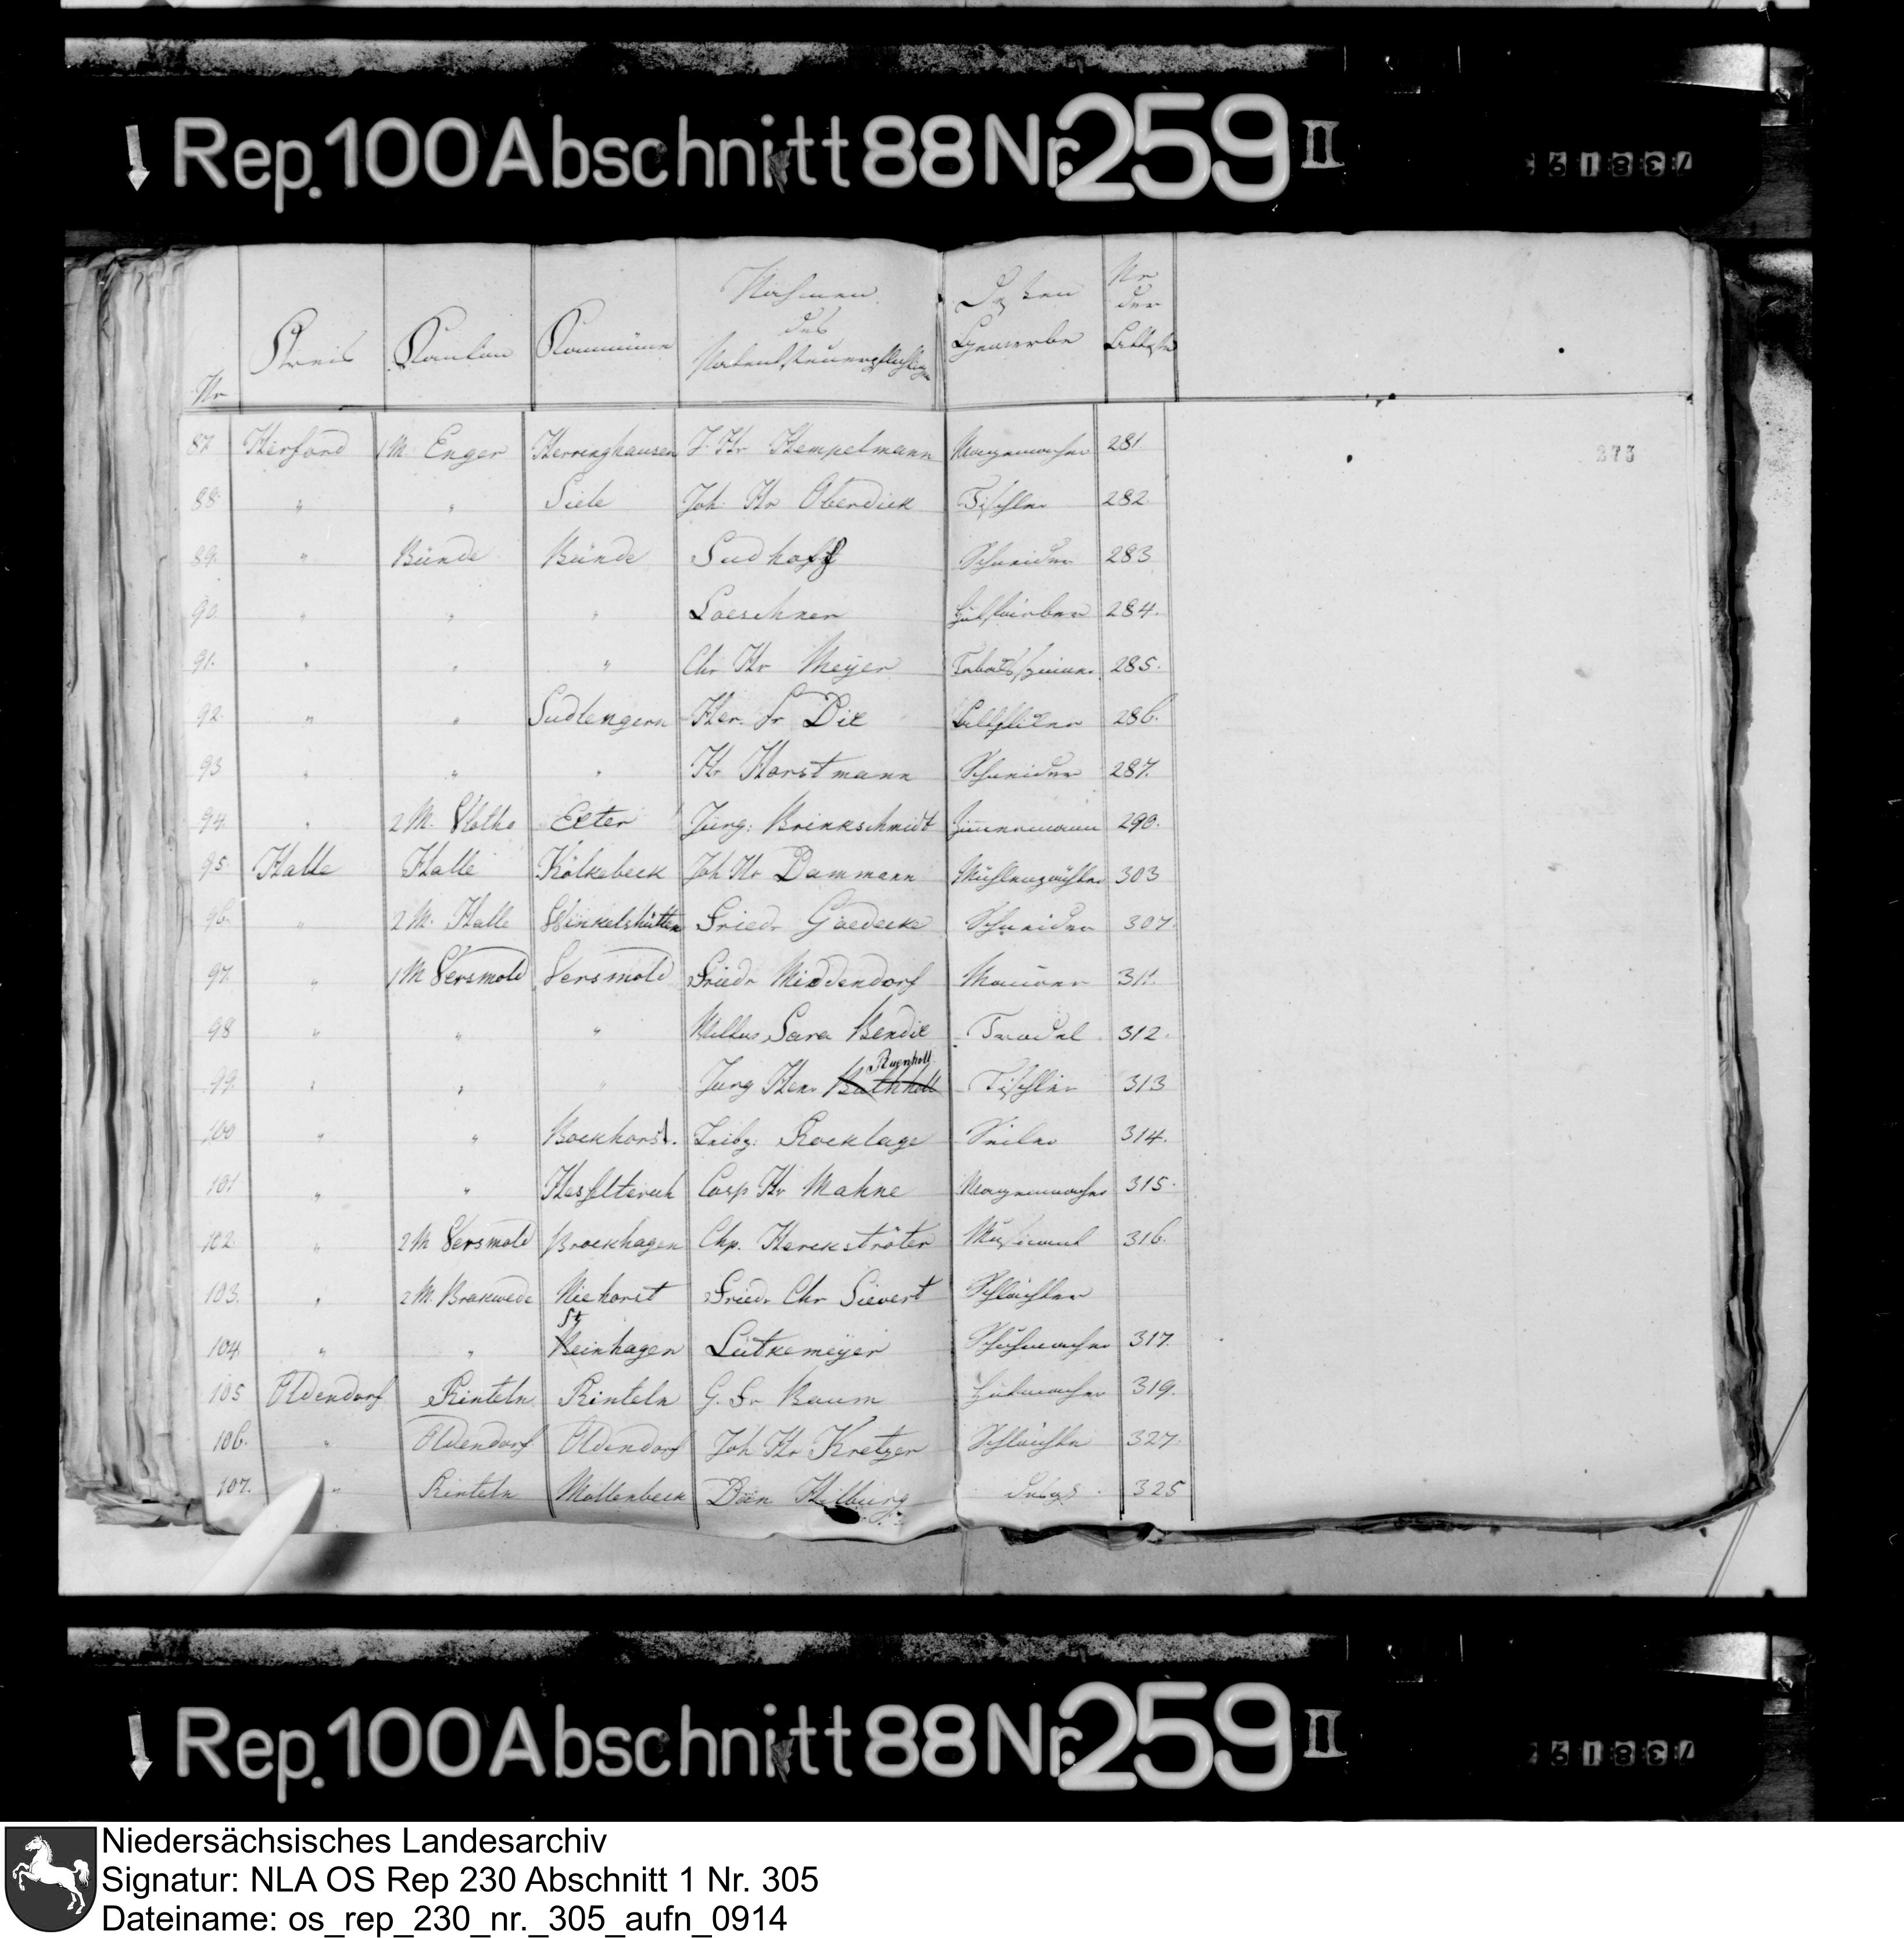 Rep. 100 Abschnitt 88 Nr. 259 II
Nr Kreis Kanton Kommüne Nahmen des Patentsteuerpflichtigen Deßen Gewerbe Nr der
273
87 Herford 1 M. Enger Herringhausen J. Hr Hempelmann 281
88. " " Siele Joh. Hr Oberdiek Tischler 282.
89. " Bünde Bünde Sudhoff Schneider 283
90. " " " Loeschner 284.
91. " " " Chr Hr Meyer 285.
92. " " Sudlengern Her. Fr Dix 286.
93 " " " Hr Horstmann Schneider 287.
94. " 2 M. Vlotho Exter Jürg: Brinkschmidt Zimmermann 290.
95. Halle Halle Kölkebeck Joh Hr Dammann 303
96. " 2 M. Halle Winkelshütten Friedr Gaedecke Schneider 307.
97. " 1 M Versmold Versmold Friedr Middendorf Maurer 311.
98 " " " Sara Bendix Trödel 312.
99. " " " Jurg Hen Tischler 313
100 " " Bockhorst. Rocklage Seiler 314.
101 " " Casp Hr Mahne 315.
102. " 2 M Versmold Brockhagen Chp. Herckströter Musicant 316.
103. " 2 M. Brakwede Niehorst Friedr Chr Sievert Schlächter
104. " " Steinhagen Lütkemeyer Schuhmacher 317.
105 Oldendorf Rinteln Rinteln G. Fr Baum Hutmacher 319.
106. " Oldendorf Oldendorf Joh Hr Kretzer Schlächter 327.
107. " Rinteln Möllenbeck Hilburg 325
Rep. 100 Abschnitt 88 Nr. 259 II
Niedersächsisches Landesarchiv
Signatur: NLA OS Rep 230 Abschnitt 1 Nr. 305
Dateiname: os_rep_230_nr._305_aufn_0914